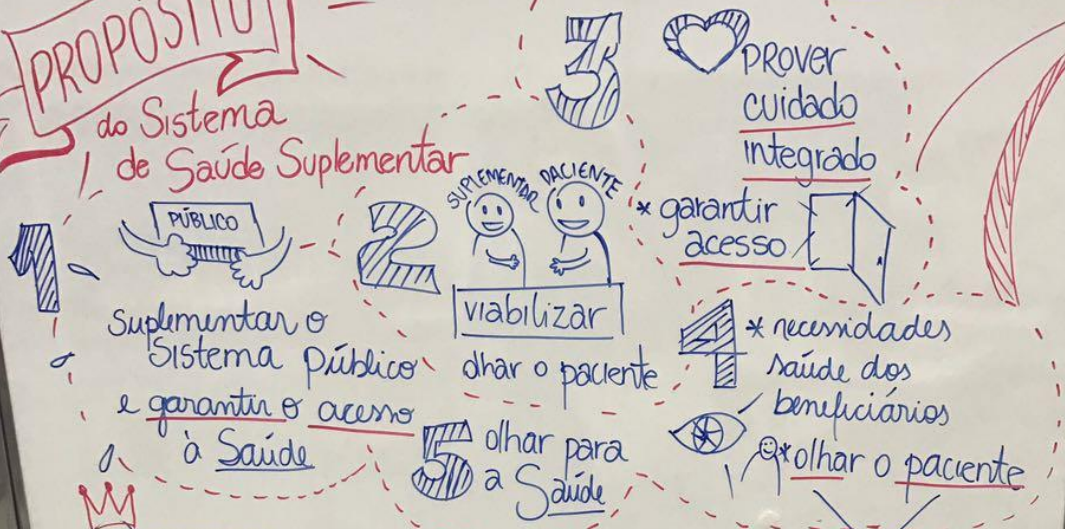 PROPÓSITO
do Sistema
de Saúde Suplementar
1
PÚBLICO
Suplementar o
Sistema Público
e garantir o acesso
à Saúde
2
SUPLEMENTAR PACIENTE
viabilizar
olhar o paciente
3
PROVER
cuidado
integrado
* garantir
acesso
4
* necessidades
saúde dos
beneficiários
* olhar o paciente
5
olhar para
a Saúde